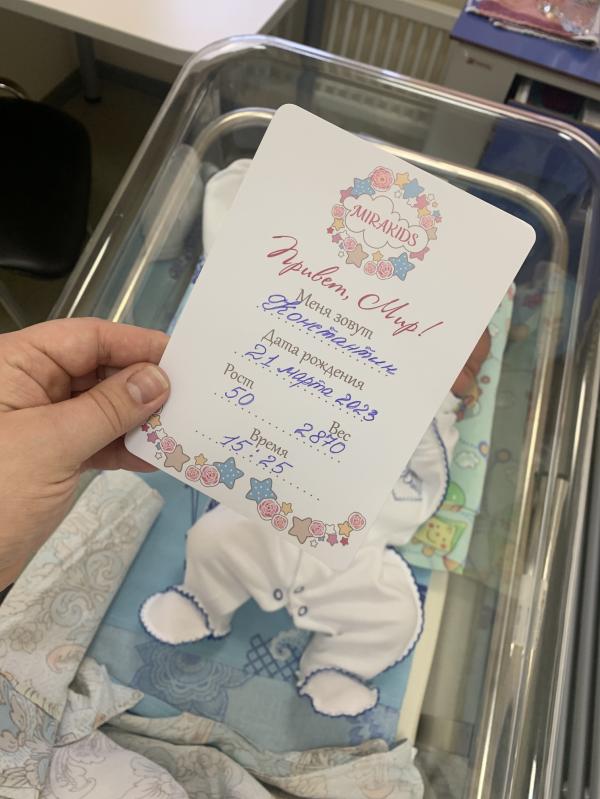 MIRAKIDS
Привет, Мир!
Меня зовут
Константин
Дата рождения
21 марта 2023
Рост Вес
50 2870
Время
15:25